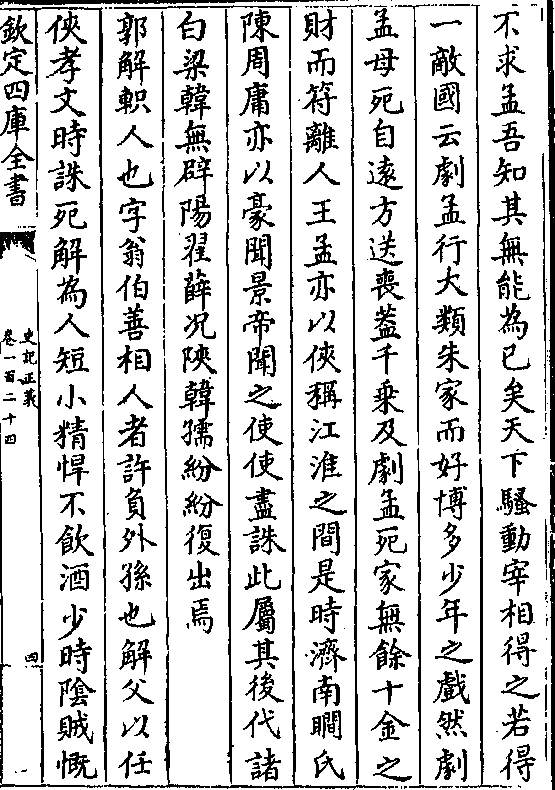 不求孟吾知其無能為已矣天下騷動宰相得之若得
一敵國云劇孟行大類朱家而好博多少年之戲然劇
孟母死自遠方送喪蓋千乗及劇孟死家無餘十金之
財而符離人王孟亦以俠稱江淮之間是時濟南瞷氏
陳周庸亦以豪聞景帝聞之使使盡誅此屬其後代諸
白梁韓無辟陽翟薛况陜韓孺紛紛復出焉
郭解軹人也字翁伯善相人者許負外孫也解父以任
俠孝文時誅死解為人短小精悍不飲酒少時陰賊慨
欽定四庫全書
史記正義
卷一百二十四
四